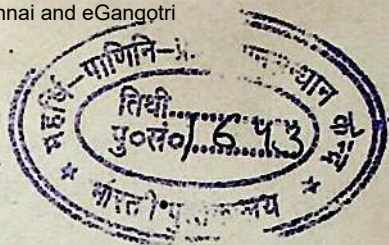 nnai and eGangotri
महर्षि-पाणिनि-
तिथी..............
पु०सं० 1643
* भारती पुस्तकालय *